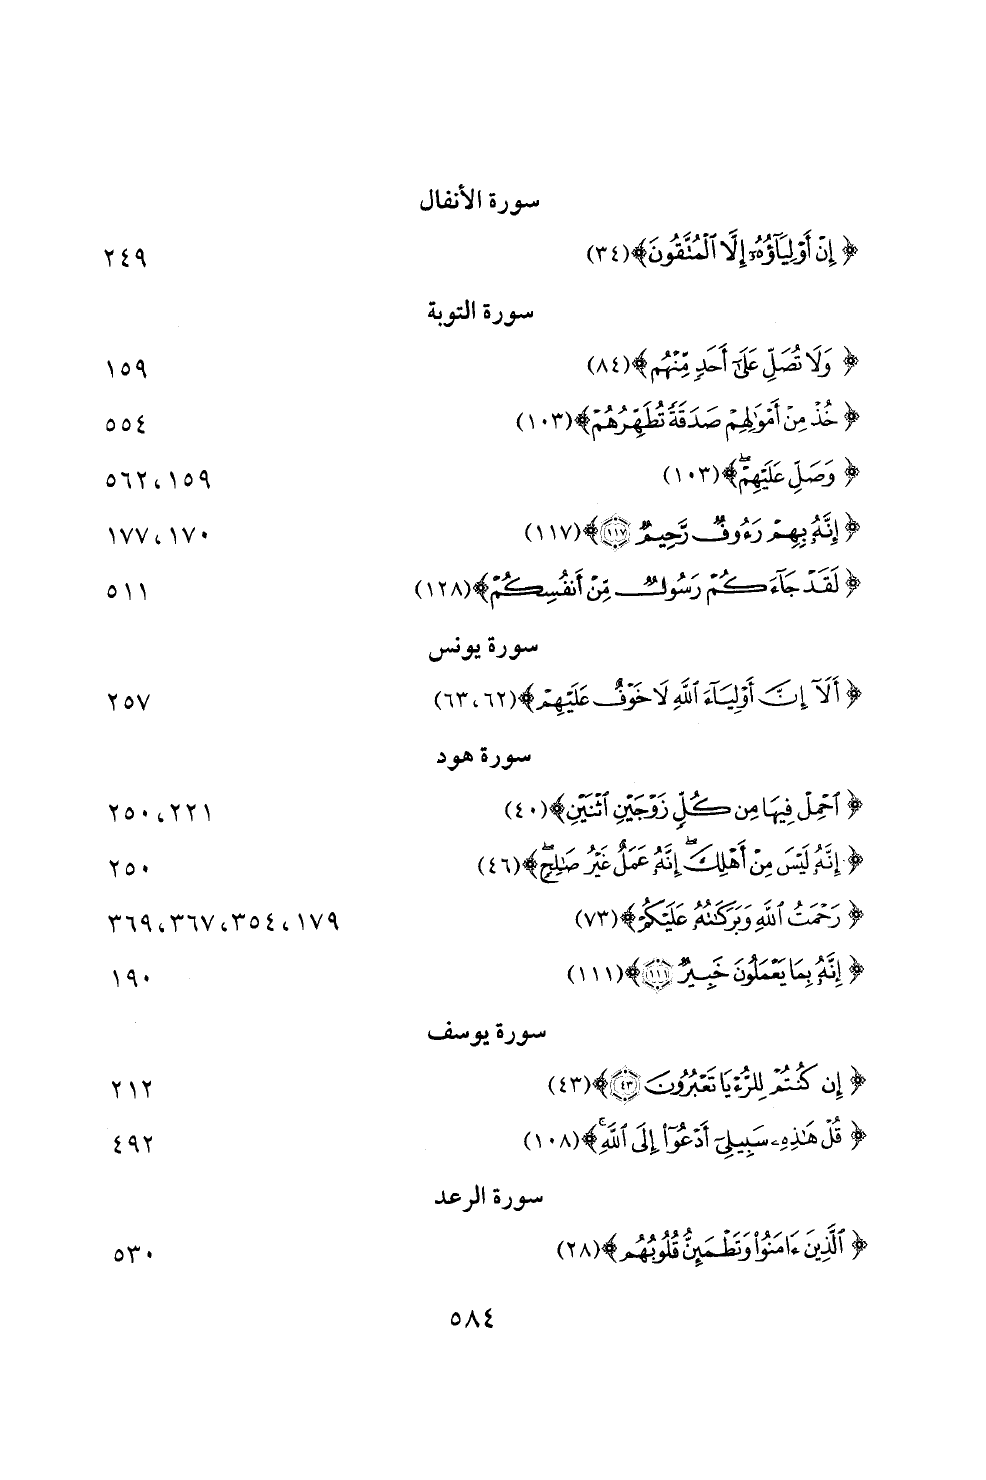 سورة الأنفال
﴿ إِنْ أَوْلِيَآؤُهُۥٓ إِلَّا ٱلْمُتَّقُونَ﴾(٣٤) ٢٤٩
سورة التوبة
﴿ وَلَا تُصَلِّ عَلَىٰٓ أَحَدٍ مِّنْهُم﴾(٨٤) ١٥٩
﴿ خُذْ مِنْ أَمْوَٰلِهِمْ صَدَقَةً تُطَهِّرُهُمْ﴾(١٠٣) ٥٥٤
﴿ وَصَلِّ عَلَيْهِمْ ۖ﴾(١٠٣) ١٥٩، ٥٦٢
﴿ إِنَّهُۥ بِهِمْ رَءُوفٌ رَّحِيمٌ ١١٧﴾(١١٧) ١٧٠، ١٧٧
﴿ لَقَدْ جَآءَكُمْ رَسُولٌ مِّنْ أَنفُسِكُمْ﴾(١٢٨) ٥١١
سورة يونس
﴿ أَلَآ إِنَّ أَوْلِيَآءَ ٱللَّهِ لَا خَوْفٌ عَلَيْهِمْ﴾(٦٢، ٦٣) ٢٥٧
سورة هود
﴿ ٱحْمِلْ فِيهَا مِن كُلٍّ زَوْجَيْنِ ٱثْنَيْنِ﴾(٤٠) ٢٢١، ٢٥٠
﴿ إِنَّهُۥ لَيْسَ مِنْ أَهْلِكَ ۖ إِنَّهُۥ عَمَلٌ غَيْرُ صَٰلِحٍ ۖ﴾(٤٦) ٢٥٠
﴿ رَحْمَتُ ٱللَّهِ وَبَرَكَٰتُهُۥ عَلَيْكُمْ﴾(٧٣) ١٧٩، ٣٥٤، ٣٦٧، ٣٦٩
﴿ إِنَّهُۥ بِمَا يَعْمَلُونَ خَبِيرٌ ١١١﴾(١١١) ١٩٠
سورة يوسف
﴿ إِن كُنتُمْ لِلرُّءْيَا تَعْبُرُونَ ٤٣﴾(٤٣) ٢١٢
﴿ قُلْ هَٰذِهِۦ سَبِيلِىٓ أَدْعُوٓا۟ إِلَى ٱللَّهِ ۚ﴾(١٠٨) ٤٩٢
سورة الرعد
﴿ ٱلَّذِينَ ءَامَنُوا۟ وَتَطْمَئِنُّ قُلُوبُهُم﴾(٢٨) ٥٣٠
٥٨٤